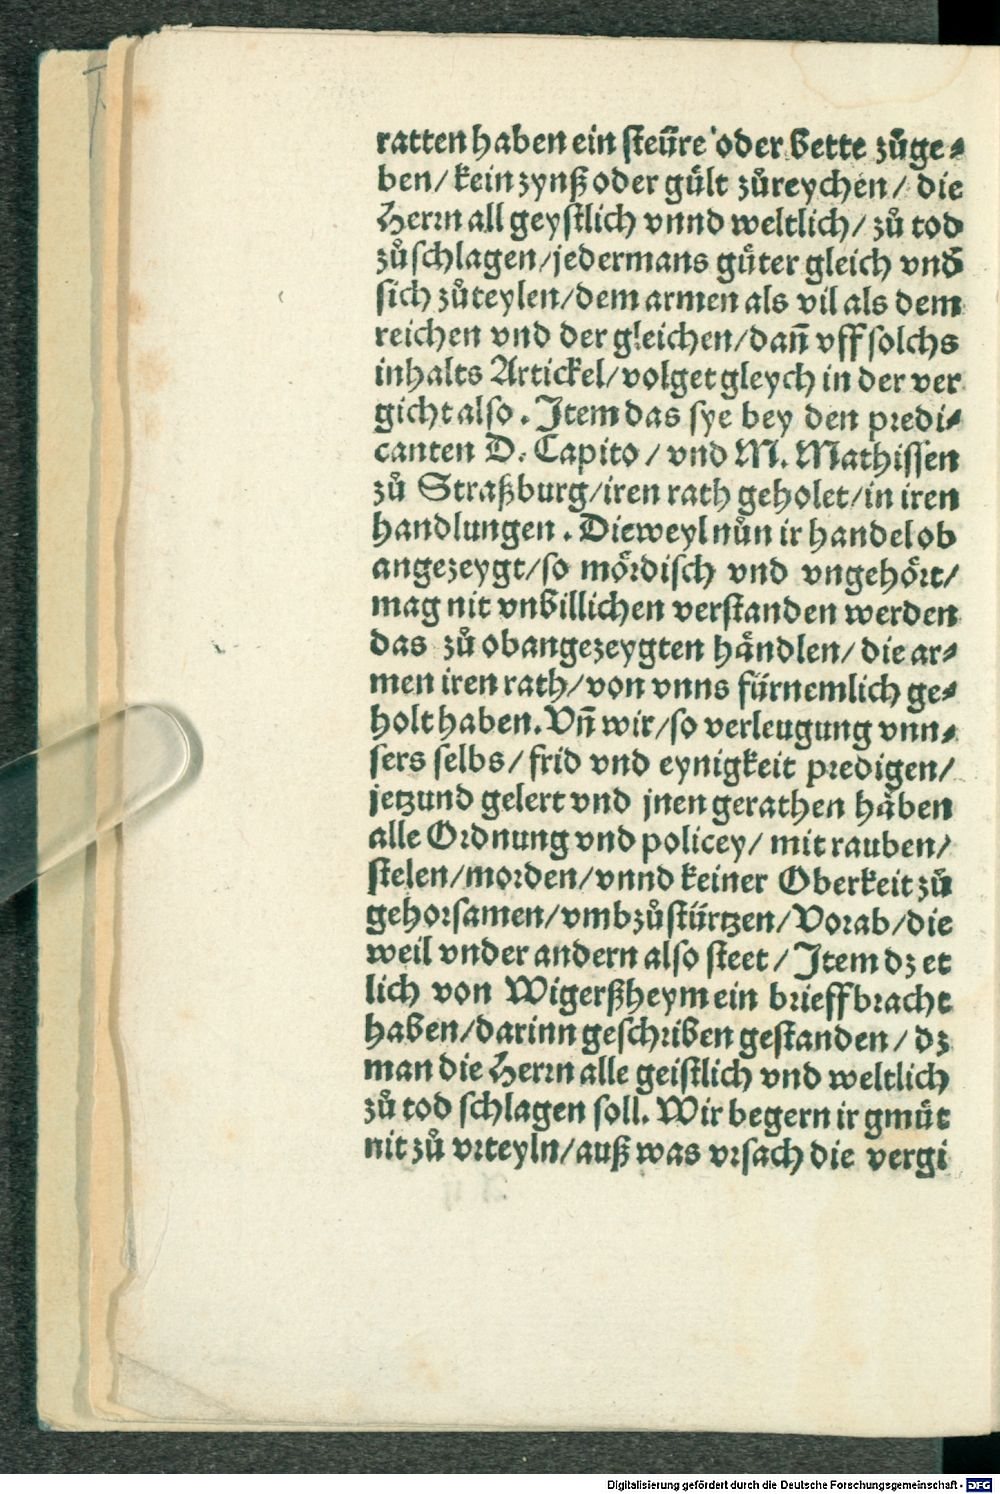 ratten haben ein steüre oder bette zůge⸗
ben/ kein zynß oder gült zůreychen/ die
Herrn all geystlich vnnd weltlich/ zů tod
zůschlagen/jedermans gůter gleich vnd
sich zůteylen/dem armen als vil als dem
reichen vnd der gleichen/dañ vff solchs
inhalts Artickel/volget gleych in der ver
gicht also. Item das sye bey den predi⸗
canten D. Capito/ vnd M. Mathissen
zů Straßburg/iren rath geholet/in iren
handlungen. Dieweyl nůn ir handel ob
angezeygt/so mördisch vnd vngehört/
mag nit vnbillichen verstanden werden
das zů obangezeygten händlen/ die ar⸗
men iren rath/von vnns fürnemlich ge⸗
holt haben. Vñ wir/so verleugung vnn⸗
sers selbs/ frid vnd eynigkeit predigen/
jetzund gelert vnd jnen gerathen häben
alle Ordnung vnd policey/ mit rauben/
stelen/morden/vnnd keiner Oberkeit zů
gehorsamen/vmbzůstürtzen/Vorab/die
weil vnder andern also steet/ Item dz et
lich von Wigerßheym ein brieff bracht
haben/darinn geschriben gestanden/ dz
man die Herrn alle geistlich vnd weltlich
zů tod schlagen soll. Wir begern ir gmüt
nit zů vrteyln/auß was vrsach die vergi
Digitalisierung gefördert durch die Deutsche Forschungsgemeinschaft - DFG